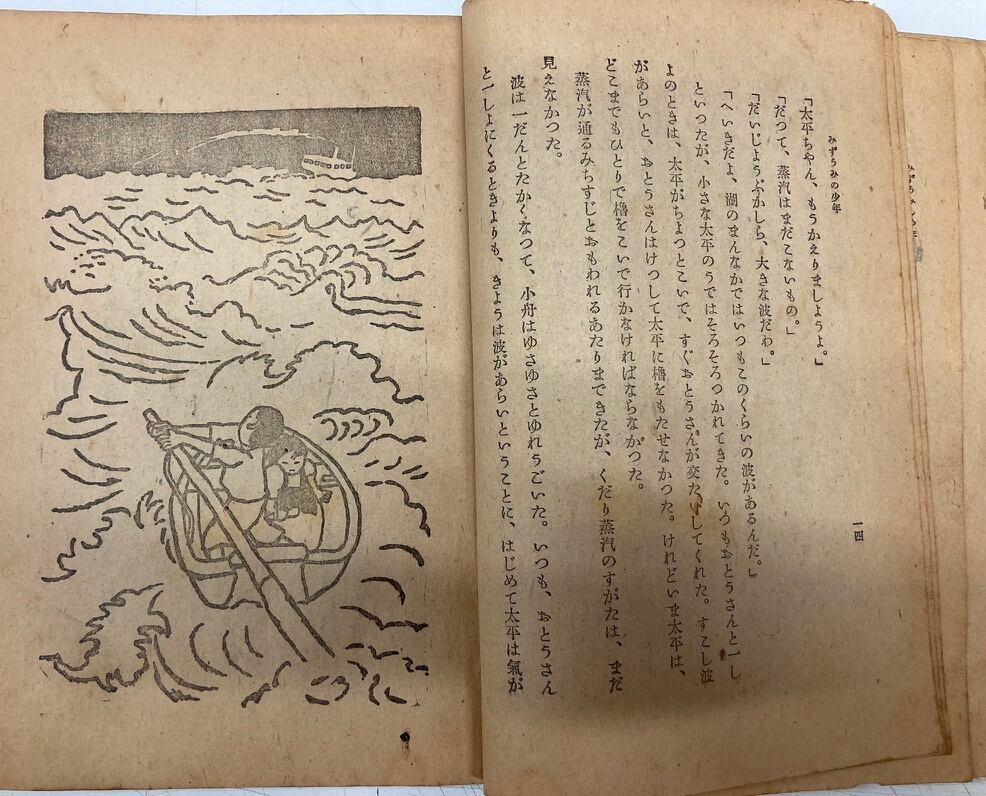 みずうみの少年
一四
「太平ちやん、もうかえりましようよ。」
「だつて、蒸汽はまだこないもの。」
「だいじようぶかしら、大きな波だわ。」
「へいきだよ、湖のまんなかではいつもこのくらいの波があるんだ。」
といつたが、小さな太平のうではそろそろつかれてきた。いつもおとうさんと一し
よのときは、太平がちよつとこいで、すぐおとうさんが変たいしてくれた。すこし波
があらいと、おとうさんはけつして太平に櫓をもたせなかつた。けれどいま太平は、
どこまでもひとりで櫓をこいで行かなければならなかつた。
蒸汽が通るみちすじとおもわれるあたりまできたが、くだり蒸汽のすがたは、まだ
見えなかつた。
波は一だんとたかくなつて、小舟はゆさゆさとゆれうごいた。いつも、おとうさん
と一しよにくるときよりも、きようは波があらいということに、はじめて太平は氣が